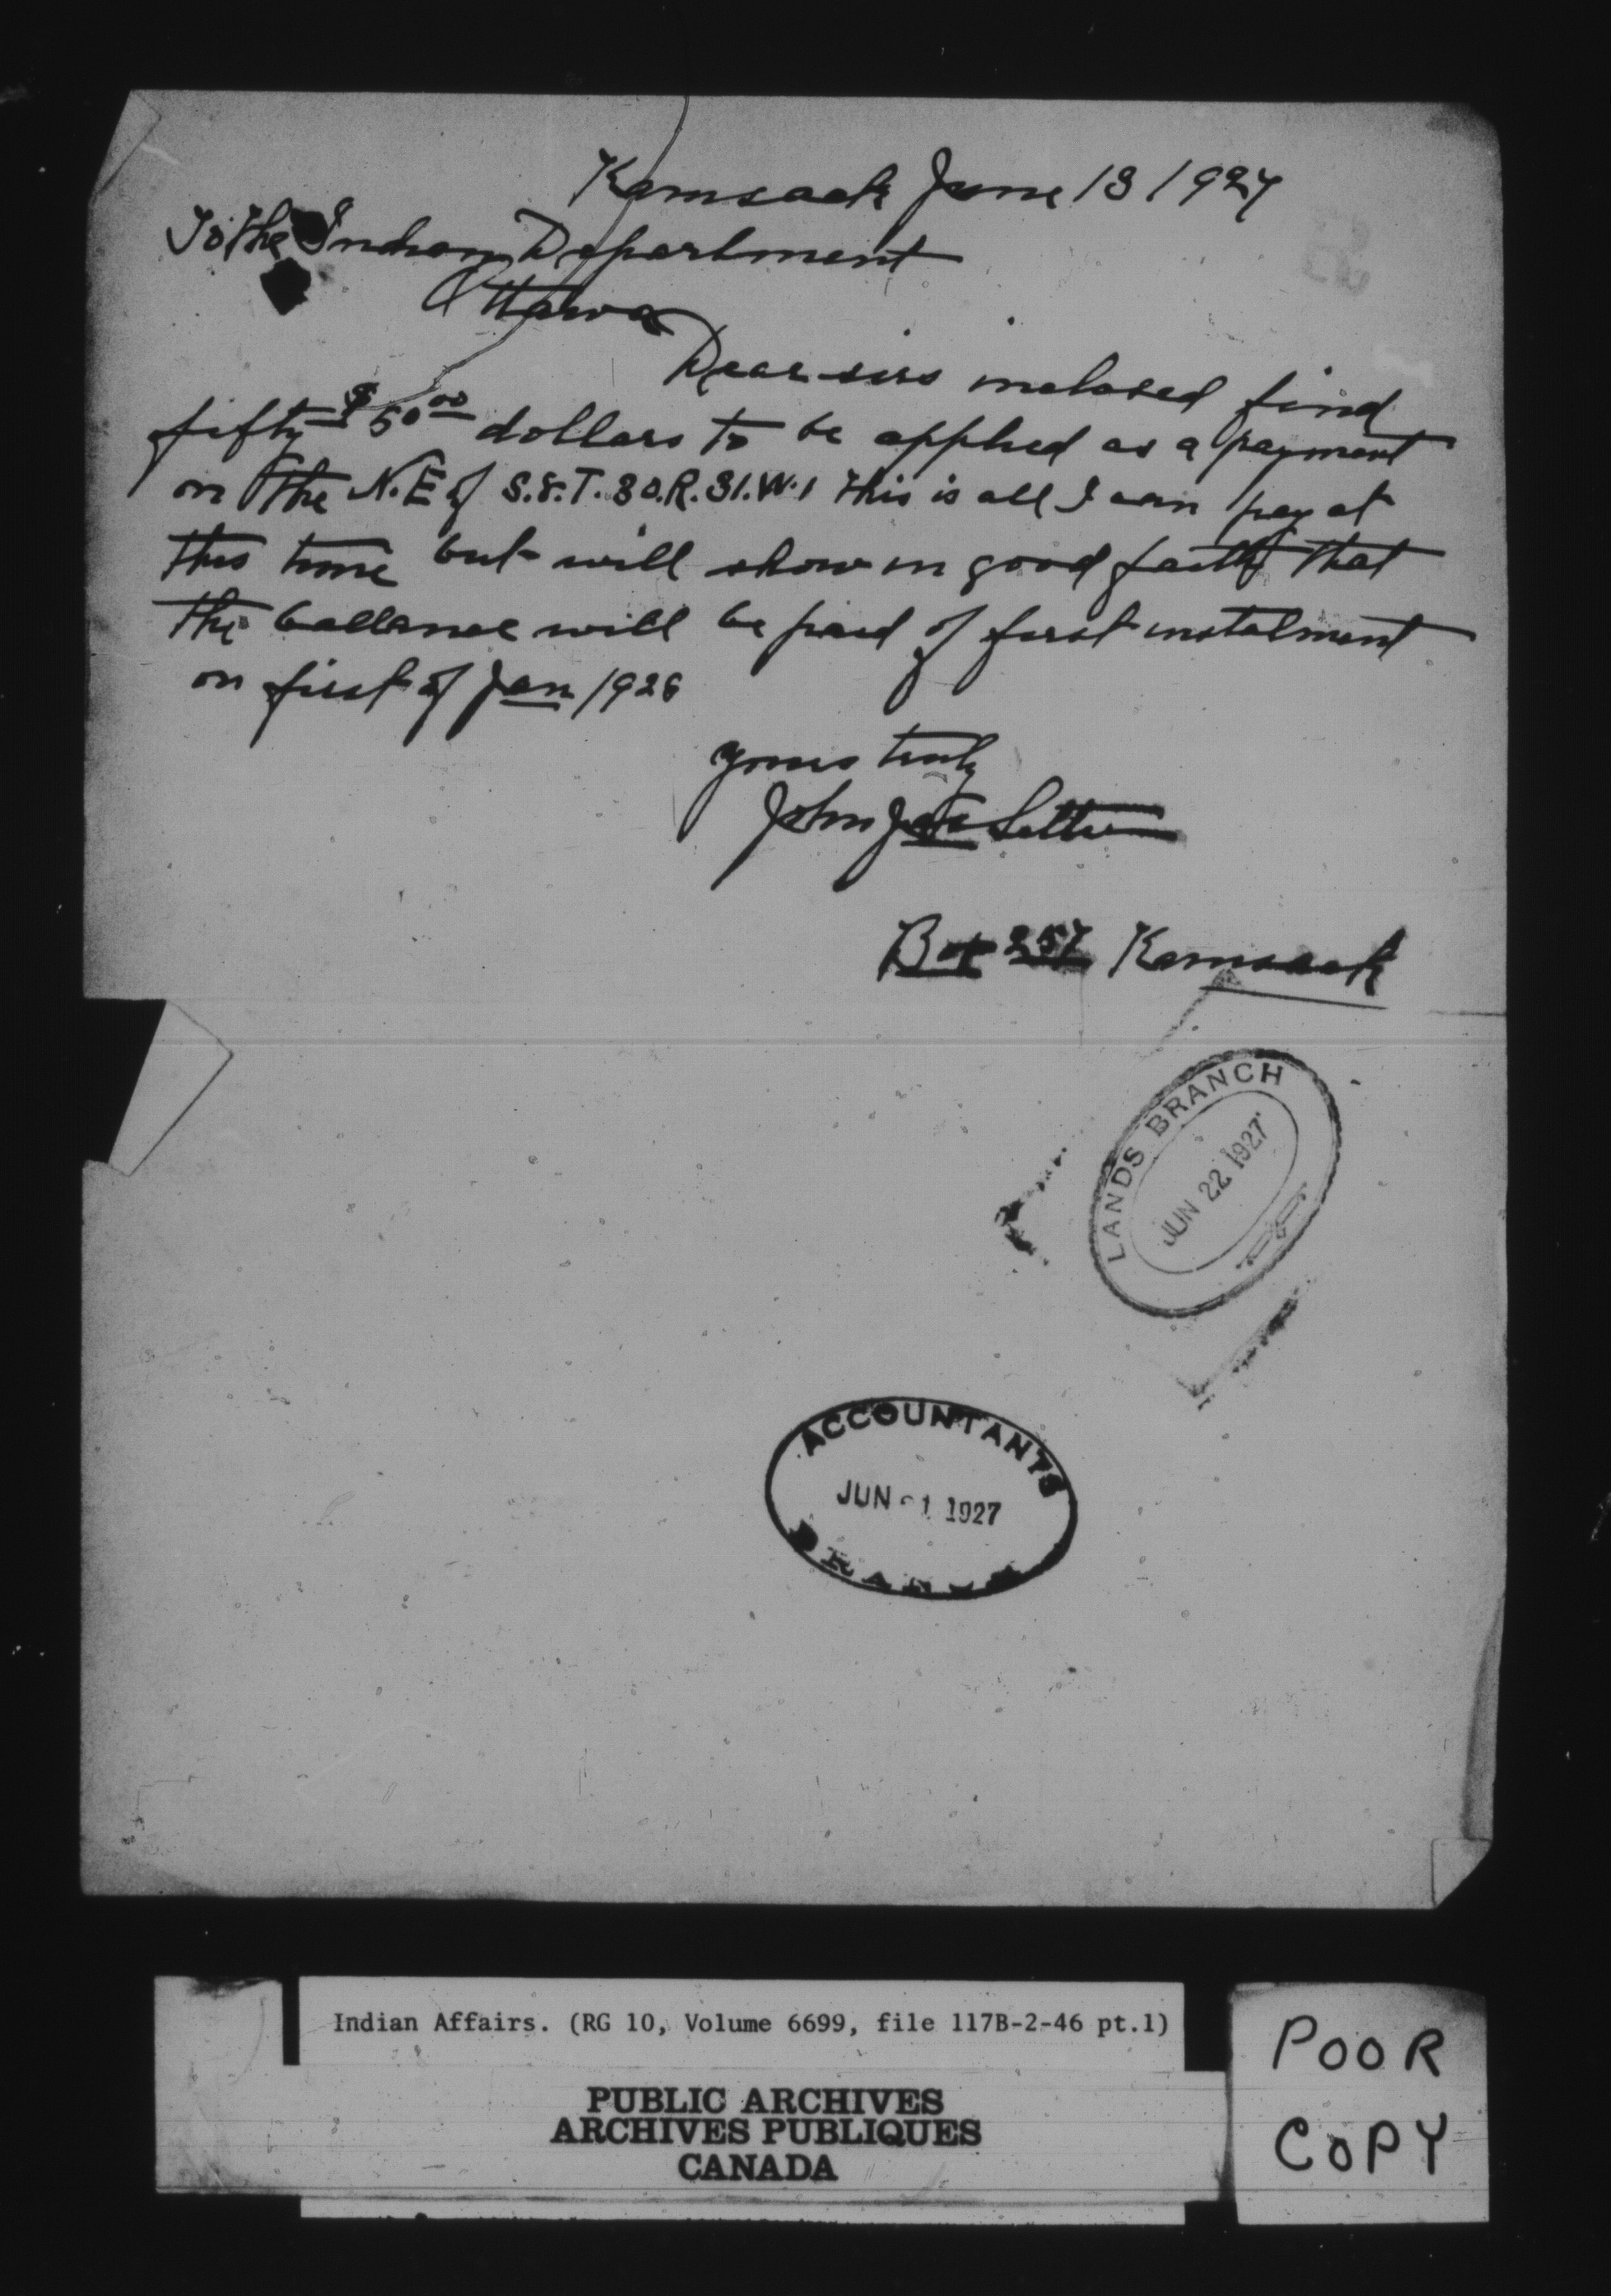 Kamsack June 13 1927
To the Indian Department
Ottawa
Dear sirs inclosed find
fifty $50.00 dollars to be applied as a payment
on the N.E of S.8.T.30.R.31.W.1 this is all I can pay at
this time but will show in good faith that
the ballance will be paid of first instalment
on first of Jan 1928
Yours truly
John Jas Setter
Box 257 Kamsack
LANDS BRANCH
JUN 22 1927
ACCOUNTANTS
JUN 21 1927
BRANCH
Indian Affairs. (RG 10, Volume 6699, file 117B-2-46 pt.1)
PUBLIC ARCHIVES
ARCHIVES PUBLIQUES
CANADA
POOR
COPY